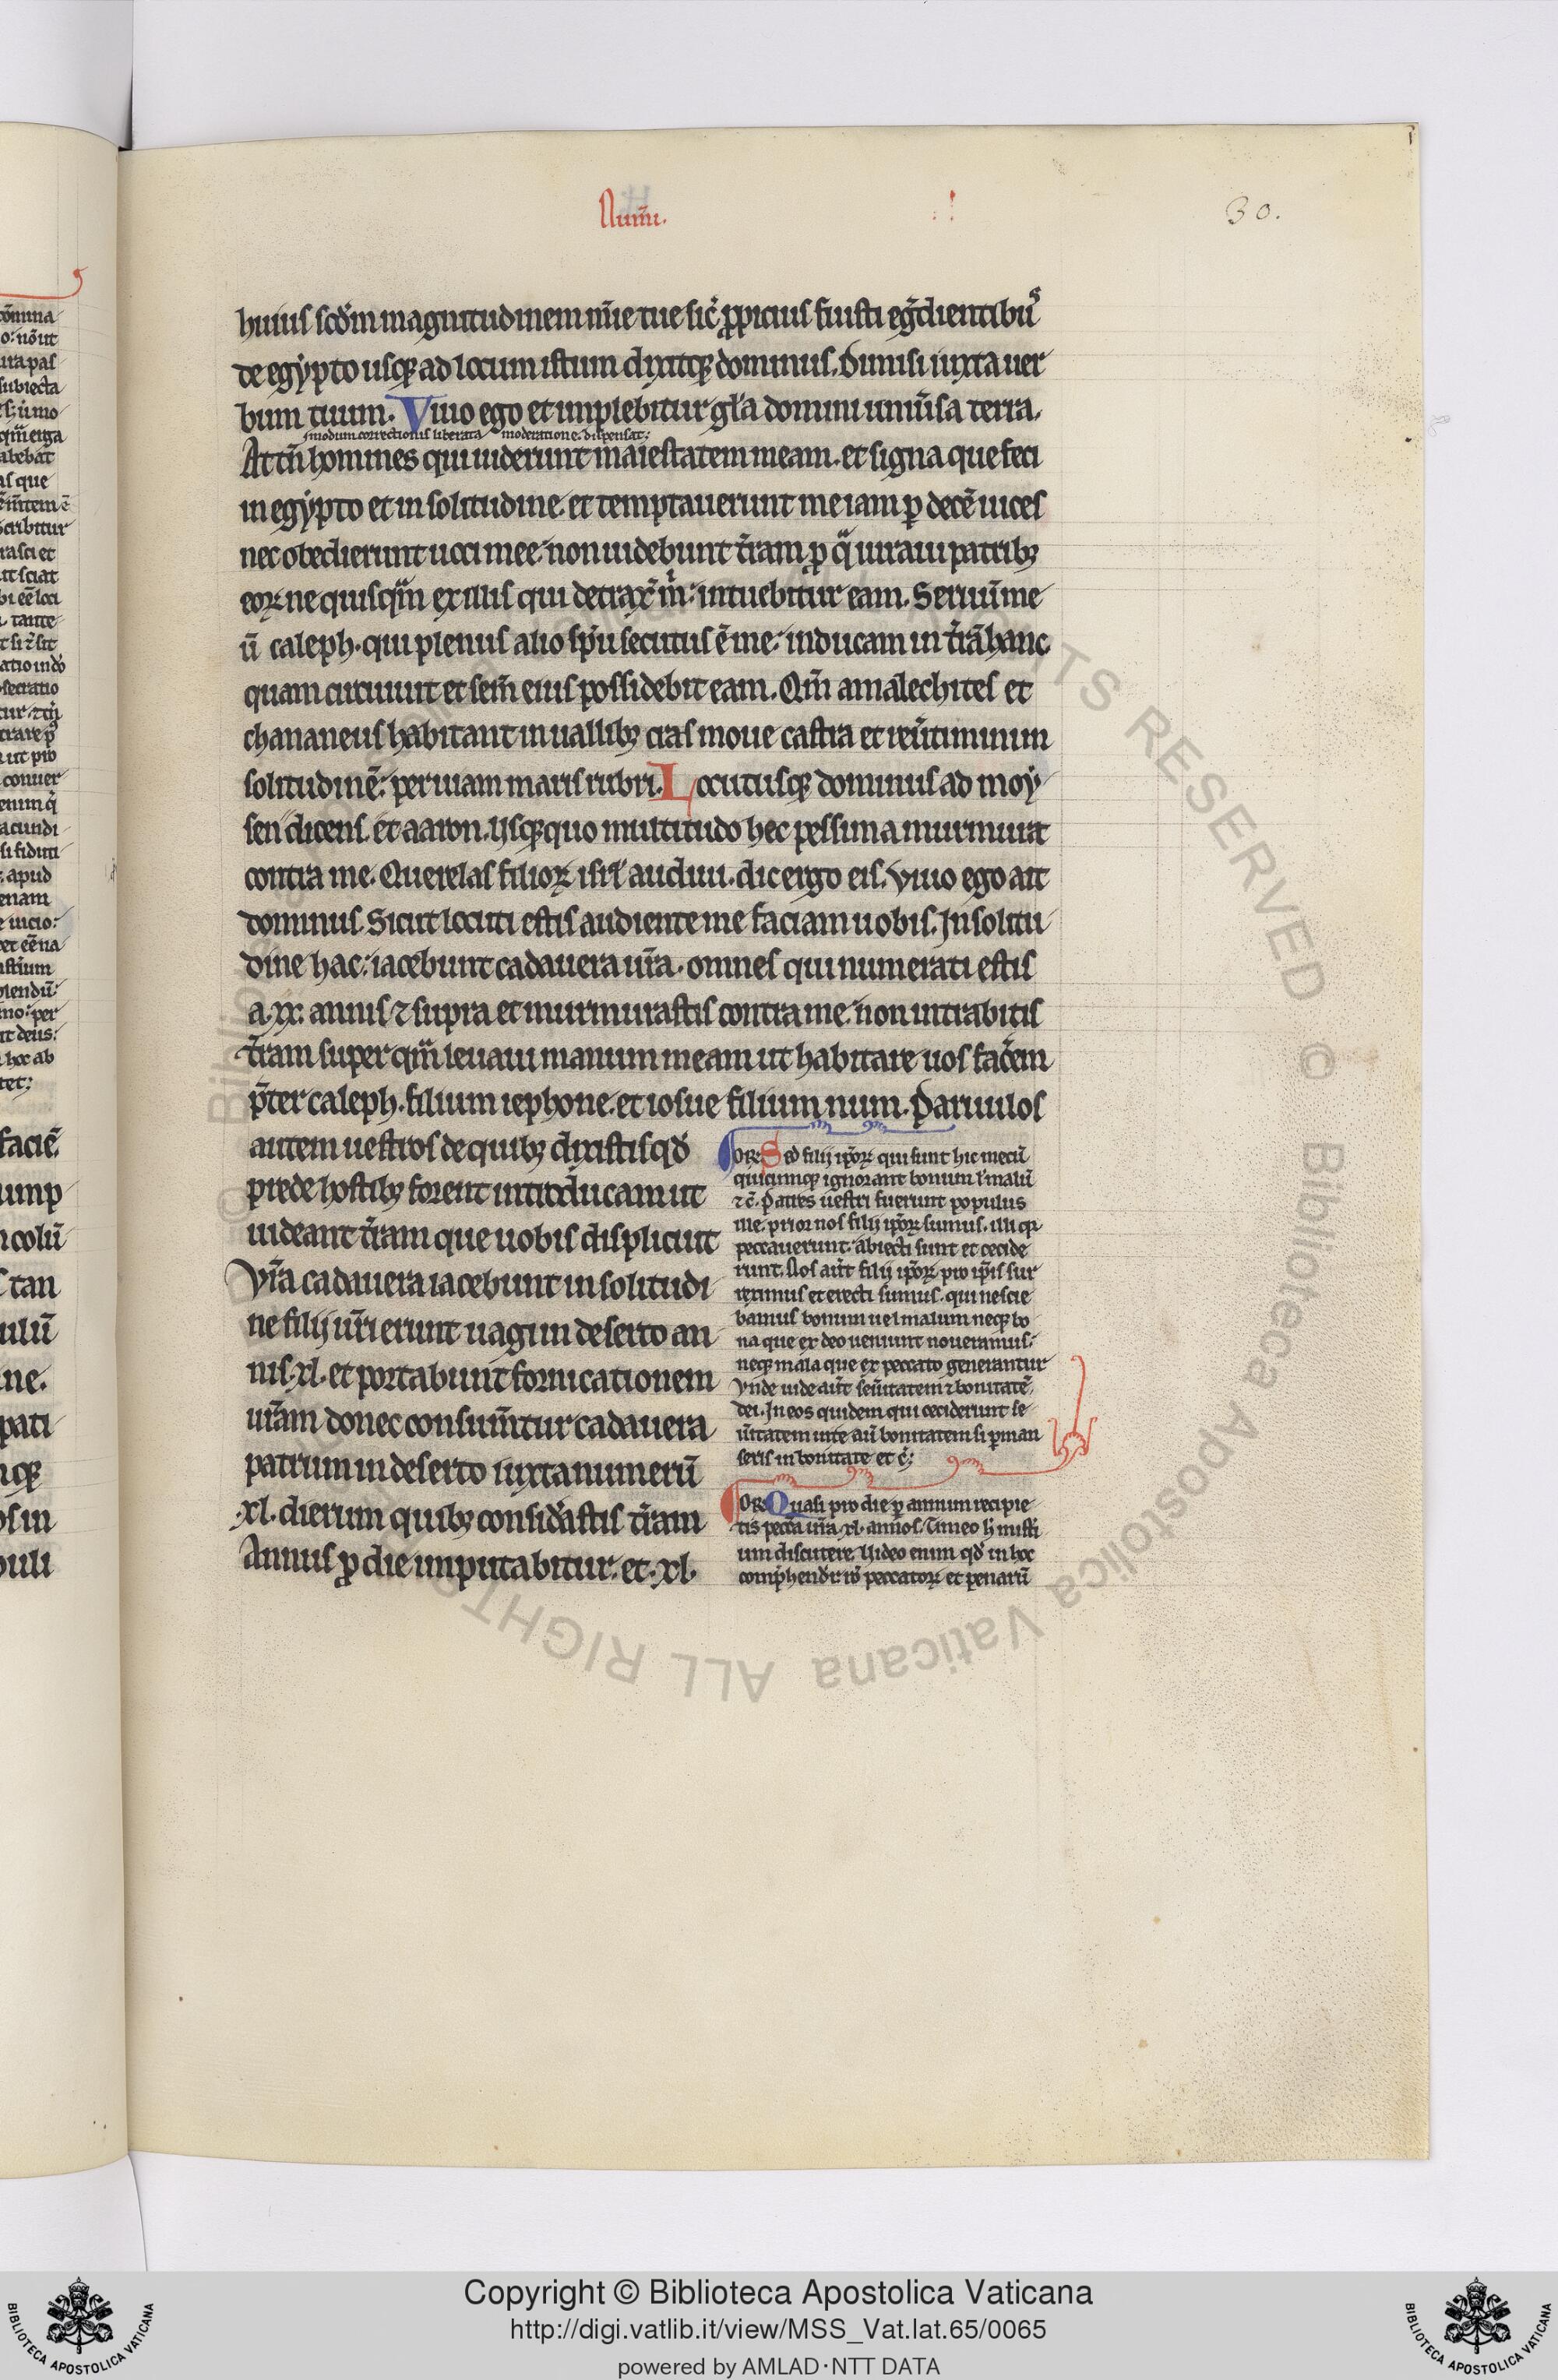 Num̅i.
30.
huius scd̅m magnitudinem mi̅e tue sic̅ p̅picius fuisti eg̅dientibus
de egypto usq; ad locum istum dixitq; dominus. Dimisi iuxta uer
bum tuum. Viuo ego et implebitur gl̅a domini uniu̅sa terra.
modum correctionis liberata moderatione dispensat:
Attn̅ homines qui uiderunt maiestatem meam. et signa que feci
in egypto et in solitudine. et temptauerunt me iam p̲ dece̅ uices
nec obedierunt uoci mee. non uidebunt tr̅am p̲ q̅ iuraui patrib;
eoꝝ ne quisq̅m ex illis qui detrax̅ m̅: intuebitur eam. Seruu̅ me
u̅ caleph. qui plenus alio sp̅u secutus e̅ me. inducam in tr̅a̅ hanc
quam circuiuit et sem̅ eius possidebit eam. Qm̅ amalechites et
chananeus habitant in uallib; cras moue castra et reu̅timini in
solitudine̅: per uiam maris rubri. Locutusq; dominus ad moy
sen dicens. et aaron. Usq; quo multitudo hec pessima murmurat
contra me. Querelas filioꝝ isrl̅ audiui. dic ergo eis. Viuo ego ait
dominus. Sicut locuti estis audiente me faciam uobis. In solitu
dine hac: iacebunt cadauera ur̅a. omnes qui numerati estis
a. xx. annis ⁊ supra et murmurastis contra me. non intrabitis
tr̅am super qm̅ leuaui manum meam ut habitare uos fac̅em
p̅ter caleph. filium iephone. et iosue filium num. Paruulos
autem uestros de quib; dixistis qd̅
prede hostib; forent introducam ut
uideant tr̅am que uobis displicuit
Vr̅a cadauera iacebunt in solitudi
ne filij ur̅i erunt uagi in deserto an
nis. xl. et portabunt fornicationem
ur̅am donec consum̅tur cadauera
patrum in deserto iuxta numeru̅
.xl. dierum quib; consid̅astis tr̅am
Annus p̲ die imputabitur. et. xl.
OR. Sed filij ip̅oꝝ qui sunt hic mecu̅
quicumq; ignorant bonum l̅ malu̅
⁊ c̅. Patres uestri fuerunt populus
ille. prior nos filij ip̅oꝝ sumus. illi q̲
peccauerunt. abiecti sunt et cecide
runt. Nos aut̅ filij ip̅oꝝ pro ip̅is sur
reximus et erecti sumus. qui nescie
bamus bonum uel malum neq; bo
na que ex deo ueniunt noueramus.
neq; mala que ex peccato generantur
Vnde uide aut̅ seu̅itatem ⁊ bonitate̅.
dei. In eos quidem qui ceciderunt se
u̅itatem in te au̅ bonitatem si p̲man
seris in bonitate et c̅;
OR. Quasi pro die p̲ annum recipie
tis pecca̅ ur̅a. xl. annos. Timeo h̅ misti
um discutere. Uideo enim qd̅ in hoc
comp̅hendr̅ ro̅ peccatoꝝ et penaru̅
Copyright © Biblioteca Apostolica Vaticana
http://digi.vatlib.it/view/MSS_Vat.lat.65/0065
powered by AMLAD·NTT DATA